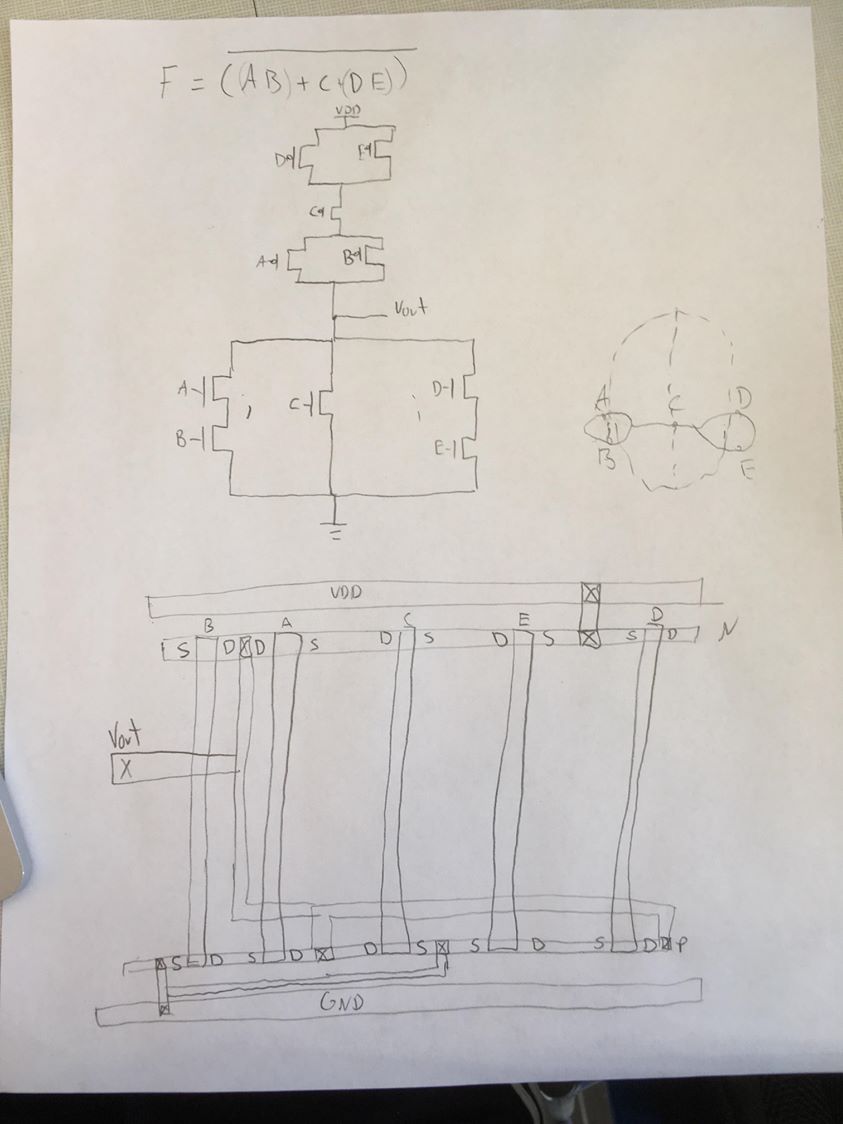 F = (AB)+C+(DE))
VDD
D E
C
A B
Vout
A C D
B E
A C D
B E
VDD
B A C E D
S D X D S D S D S X S D N
Vout
X
X S D S D X D S X S D S D X P
GND